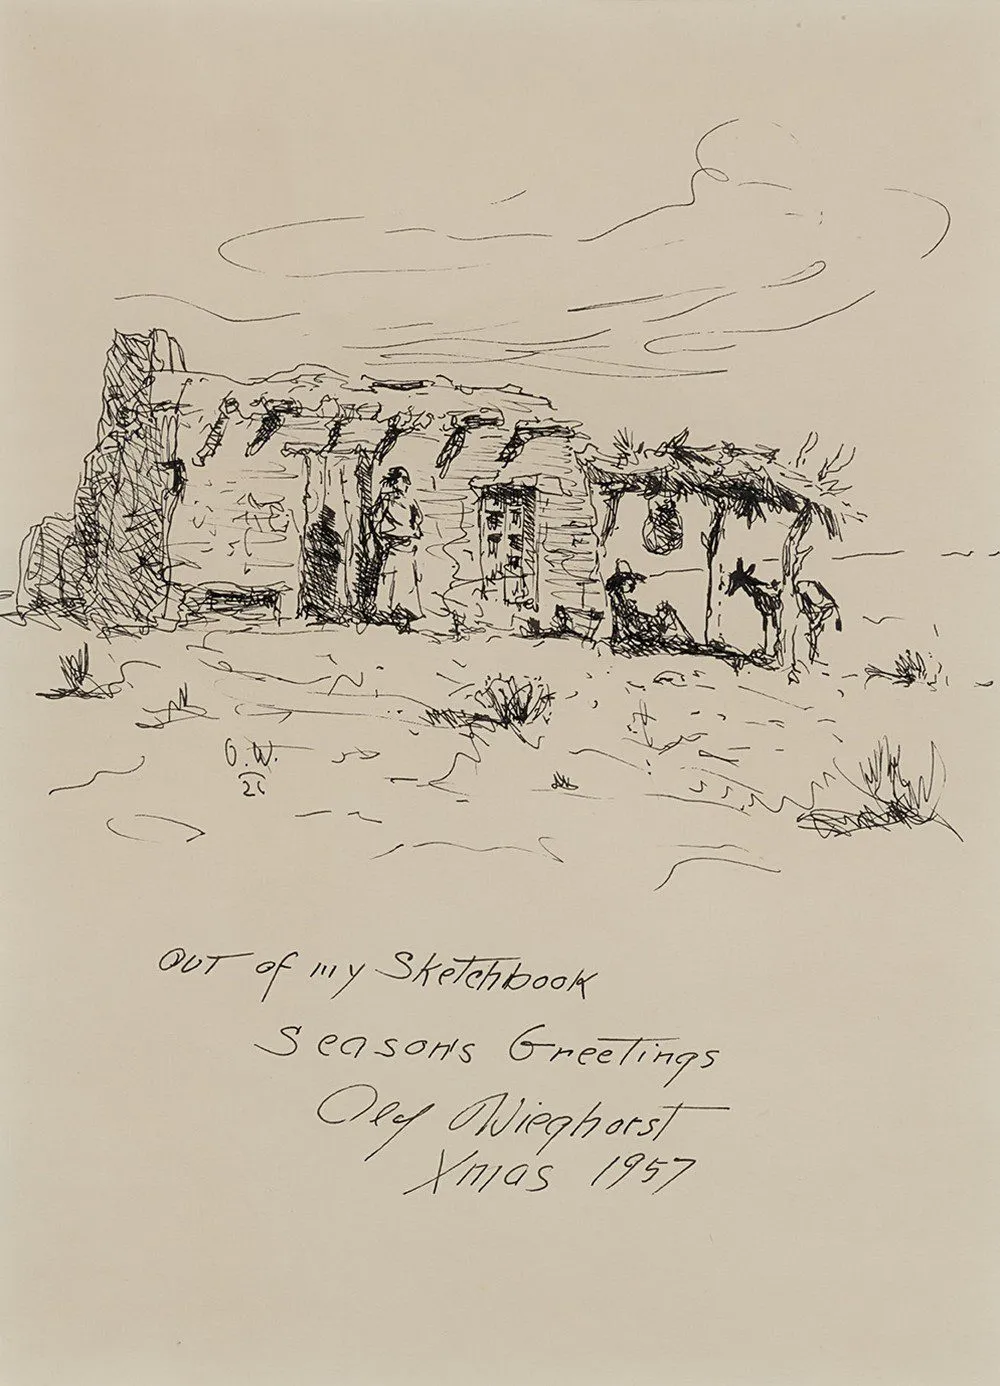 O.W.
26
Out of my Sketchbook
Season's Greetings
Olaf Wieghorst
Xmas 1957